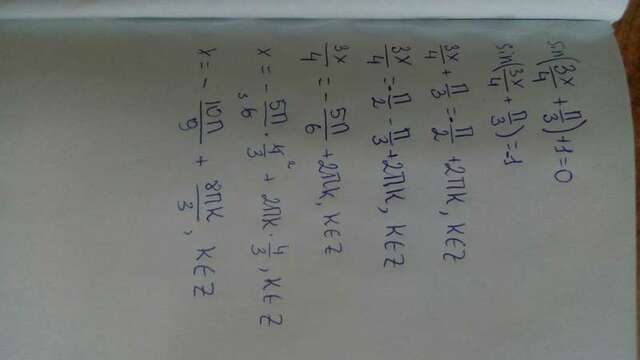 sin(3x/4 + π/3)+1=0
sin(3x/4 + π/3)=-1
3x/4 + π/3 = -π/2 + 2πk, k∈Z
3x/4 = -π/2 - π/3 + 2πk, k∈Z
3x/4 = -5π/6 + 2πk, k∈Z
x = -5π/6 · 4/3 + 2πk · 4/3, k∈Z
x = -10π/9 + 8πk/3, k∈Z